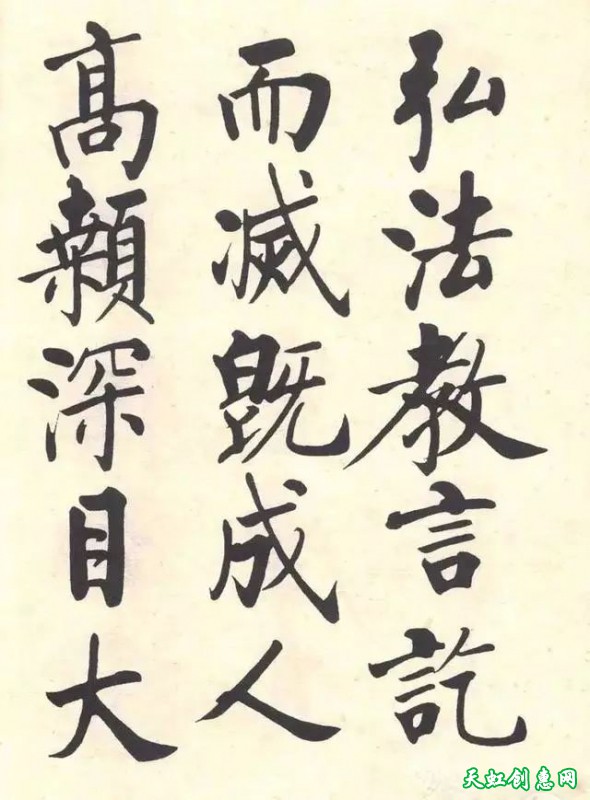 弘法教言訖
而滅既成人
髙顙深目大
天虹创惠网